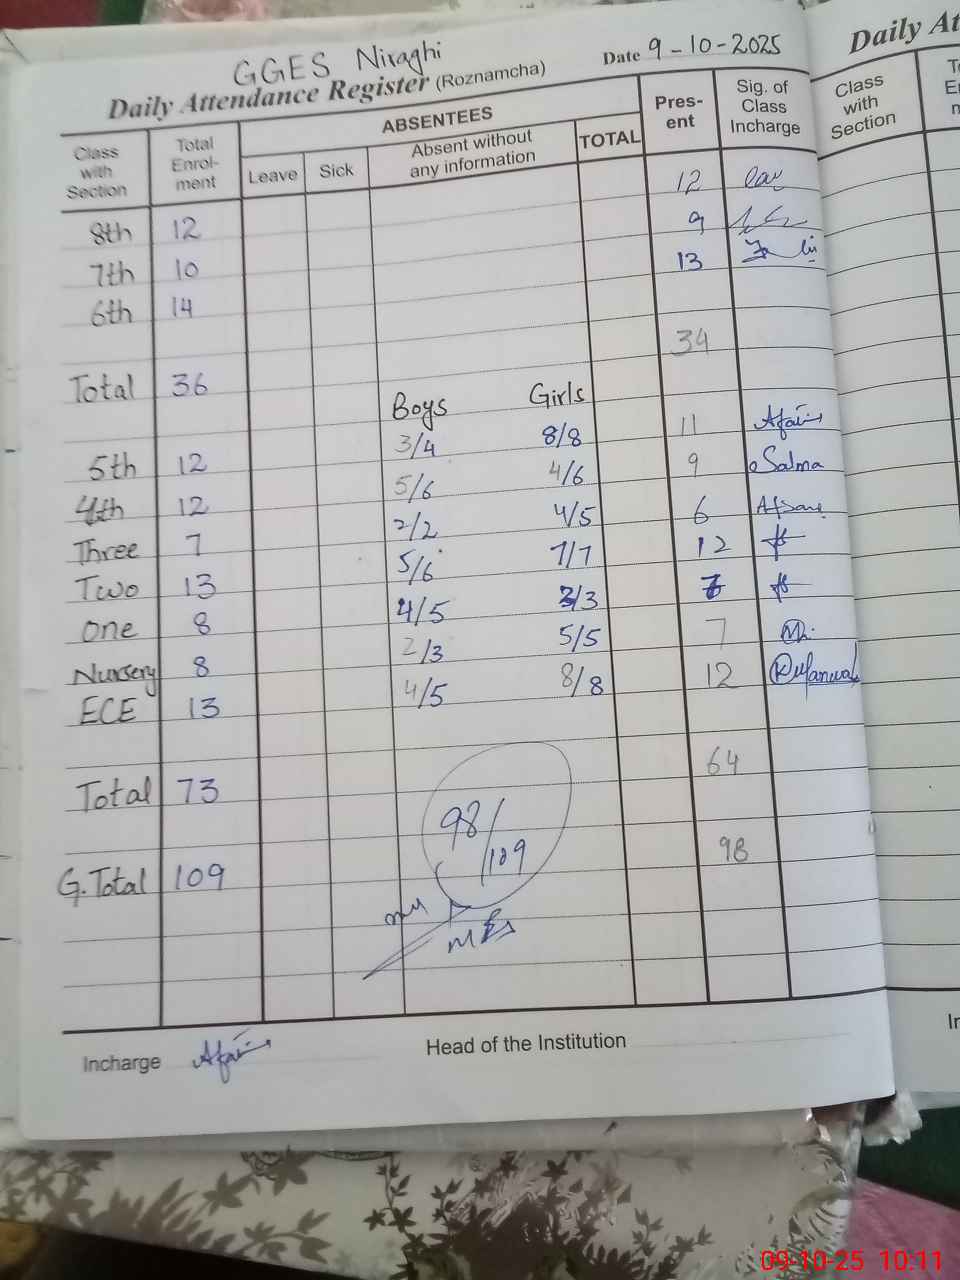 GGES Niraghi
Daily Attendance Register (Roznamcha) Date 9-10-2025
Class with Section Total Enrol-ment ABSENTEES Leave Sick Absent without any information TOTAL Pres-ent Sig. of Class Incharge
8th 12 12
7th 10 9
6th 14 13
Total 36 34
Boys Girls
5th 12 3/4 8/8 11
4th 12 5/6 4/6 9 Salma
Three 7 2/2 4/5 6
Two 13 5/6 7/7 12
One 8 4/5 3/3 7
Nursery 8 2/3 5/5 7
ECE 13 4/5 8/8 12
Total 73 64
98/109
G.Total 109 98
Incharge Head of the Institution
Daily At
Class with Section
09-10-25 10:11